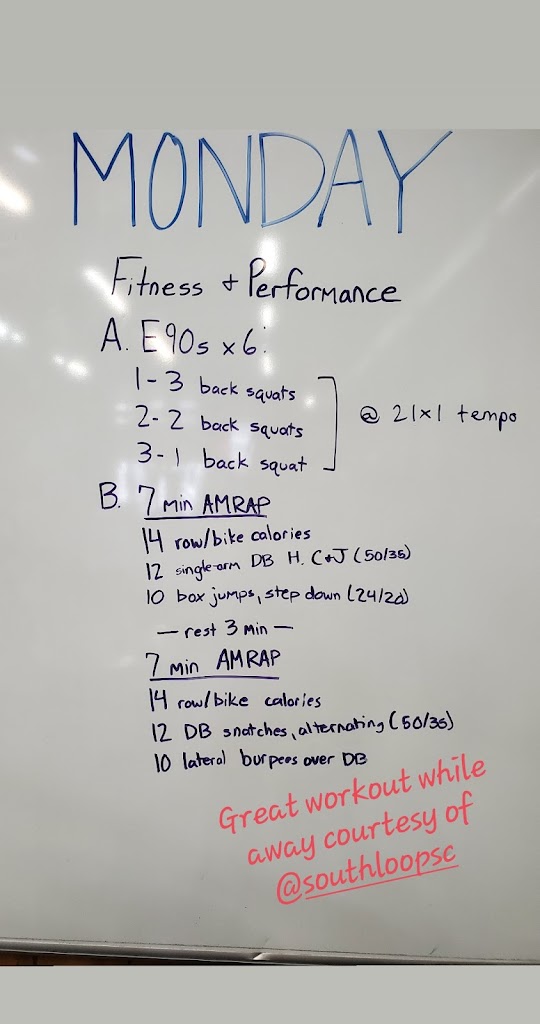 MONDAY
Fitness + Performance
A. E90s x 6:
1 - 3 back squats
2 - 2 back squats
3 - 1 back squat
@ 21x1 tempo
B. 7 min AMRAP
14 row/bike calories
12 single-arm DB H. C+J (50/35)
10 box jumps, step down (24/20)
— rest 3 min —
7 min AMRAP
14 row/bike calories
12 DB snatches, alternating (50/35)
10 lateral burpees over DB
Great workout while
away courtesy of
@southloopsc